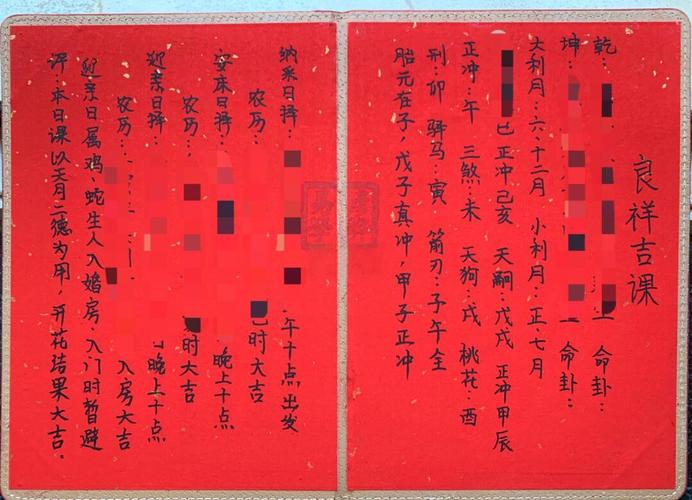 良祥吉课
乾： 命卦：
坤： 命卦：
大利月：六·十二月 小利月：正·七月
巳 正冲己亥 天嗣：戊戌 正冲甲辰
正冲：午 三煞：未 天狗：戌 桃花：酉
刑：卯 驿马：寅 箭刃：子午全
胎元在子，戊子真冲，甲子正冲
纳采日择： 午十点出发
农历： 时大吉
安床日择： 晚上十点
农历： 时大吉
迎亲日择： 晚上十点
农历： 入房大吉
迎亲日属鸡、蛇生人入婚房、入门时暂避
评：本日课以天月二德为用，开花结果大吉．